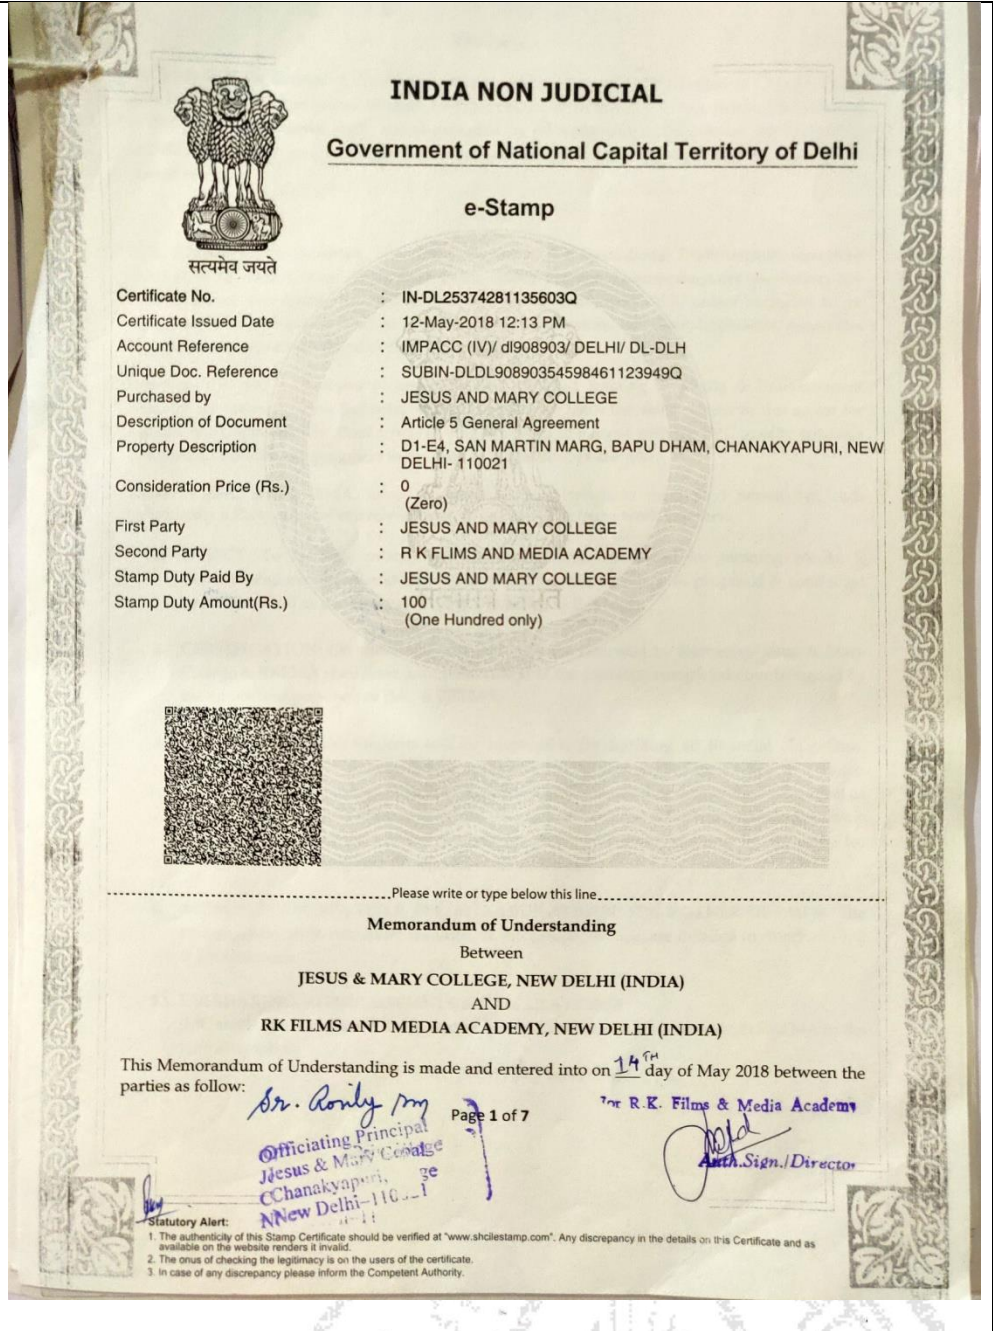 INDIA NON JUDICIAL
Government of National Capital Territory of Delhi
e-Stamp
सत्यमेव जयते
Certificate No. : IN-DL25374281135603Q
Certificate Issued Date : 12-May-2018 12:13 PM
Account Reference : IMPACC (IV)/ dl908903/ DELHI/ DL-DLH
Unique Doc. Reference : SUBIN-DLDL90890354598461123949Q
Purchased by : JESUS AND MARY COLLEGE
Description of Document : Article 5 General Agreement
Property Description : D1-E4, SAN MARTIN MARG, BAPU DHAM, CHANAKYAPURI, NEW
DELHI- 110021
Consideration Price (Rs.) : 0
(Zero)
First Party : JESUS AND MARY COLLEGE
Second Party : R K FLIMS AND MEDIA ACADEMY
Stamp Duty Paid By : JESUS AND MARY COLLEGE
Stamp Duty Amount(Rs.) : 100
(One Hundred only)
Please write or type below this line
Memorandum of Understanding
Between
JESUS & MARY COLLEGE, NEW DELHI (INDIA)
AND
RK FILMS AND MEDIA ACADEMY, NEW DELHI (INDIA)
This Memorandum of Understanding is made and entered into on 14TH day of May 2018 between the
parties as follow:
For R.K. Films & Media Academy
Page 1 of 7
Officiating Principal
Jesus & Mary College
Chanakyapuri,
New Delhi-
Auth.Sign./Director
Statutory Alert:
1. The authenticity of this Stamp Certificate should be verified at "www.shcilestamp.com". Any discrepancy in the details on this Certificate and as
available on the website renders it invalid.
2. The onus of checking the legitimacy is on the users of the certificate.
3. In case of any discrepancy please inform the Competent Authority.